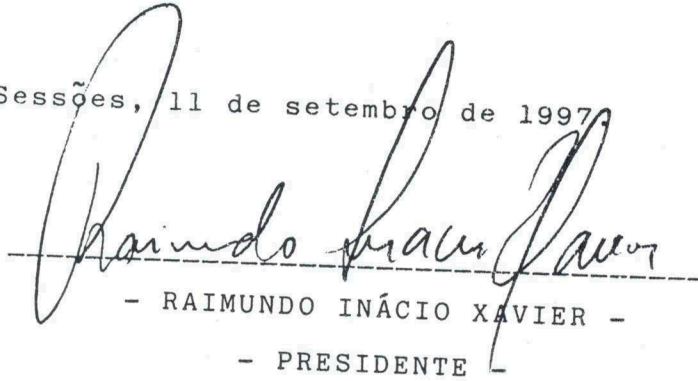 Sessões, 11 de setembro de 1997.
Raimundo Inácio Xavier
- RAIMUNDO INÁCIO XAVIER -
- PRESIDENTE -